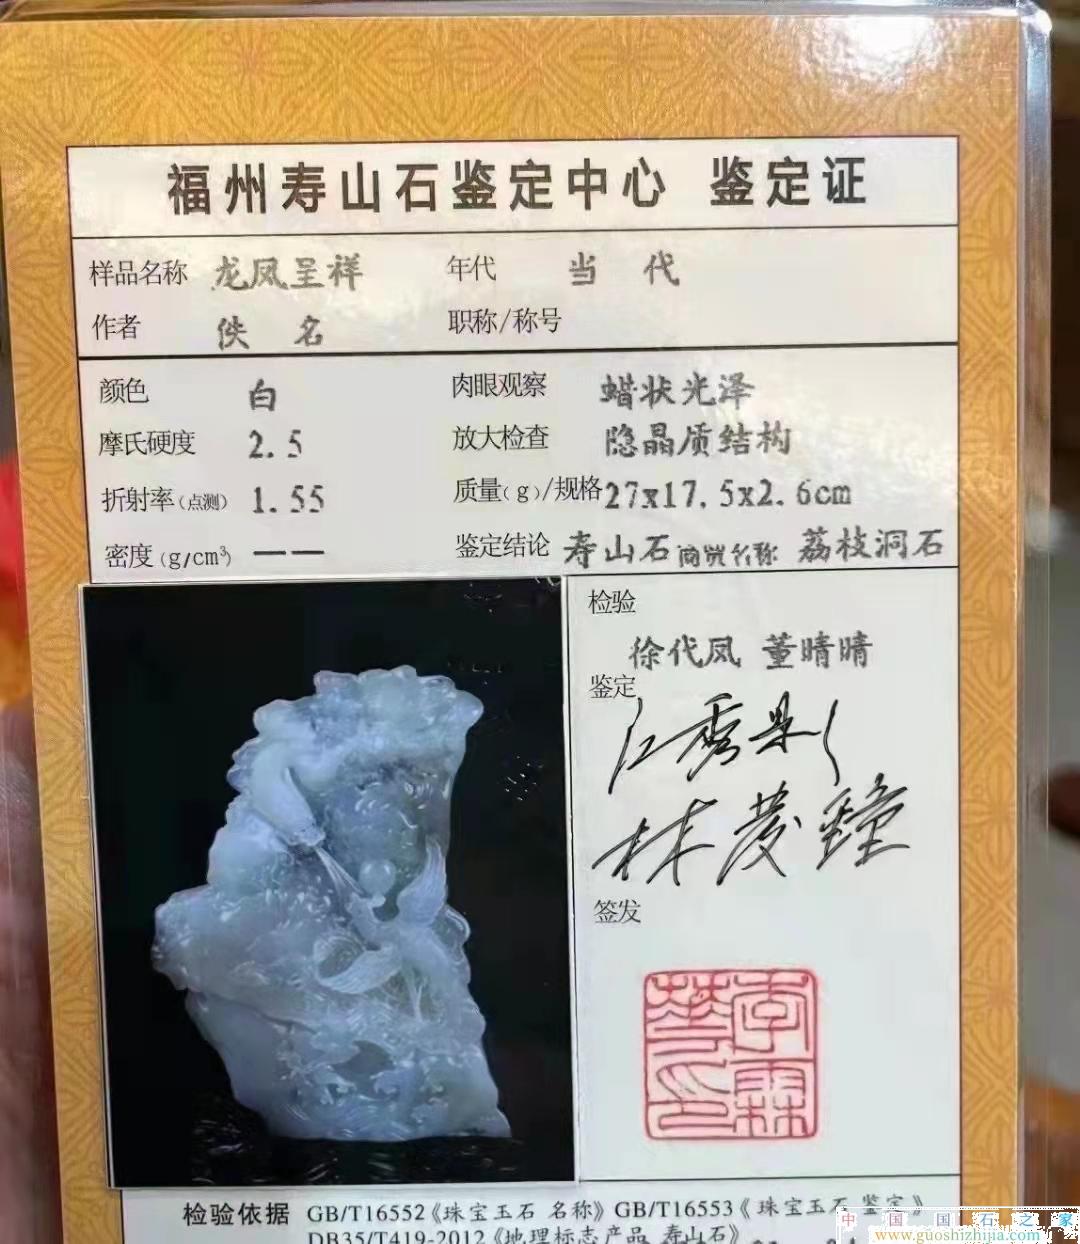 福州寿山石鉴定中心 鉴定证
样品名称 龙凤呈祥 年代 当代
作者 佚名 职称/称号
颜色 白 肉眼观察 蜡状光泽
摩氏硬度 2.5 放大检查 隐晶质结构
折射率(点测) 1.55 质量(g)/规格 27x17.5x2.6cm
密度(g/cm³) —— 鉴定结论 寿山石 商贸名称 荔枝洞石
检验
徐代凤 董晴晴
鉴定
林茂钟
签发
检验依据 GB/T16552《珠宝玉石 名称》GB/T16553《珠宝玉石 鉴定》
DB35/T419-2012《地理标志产品 寿山石》
中国国石之家
www.guoshizhijia.com